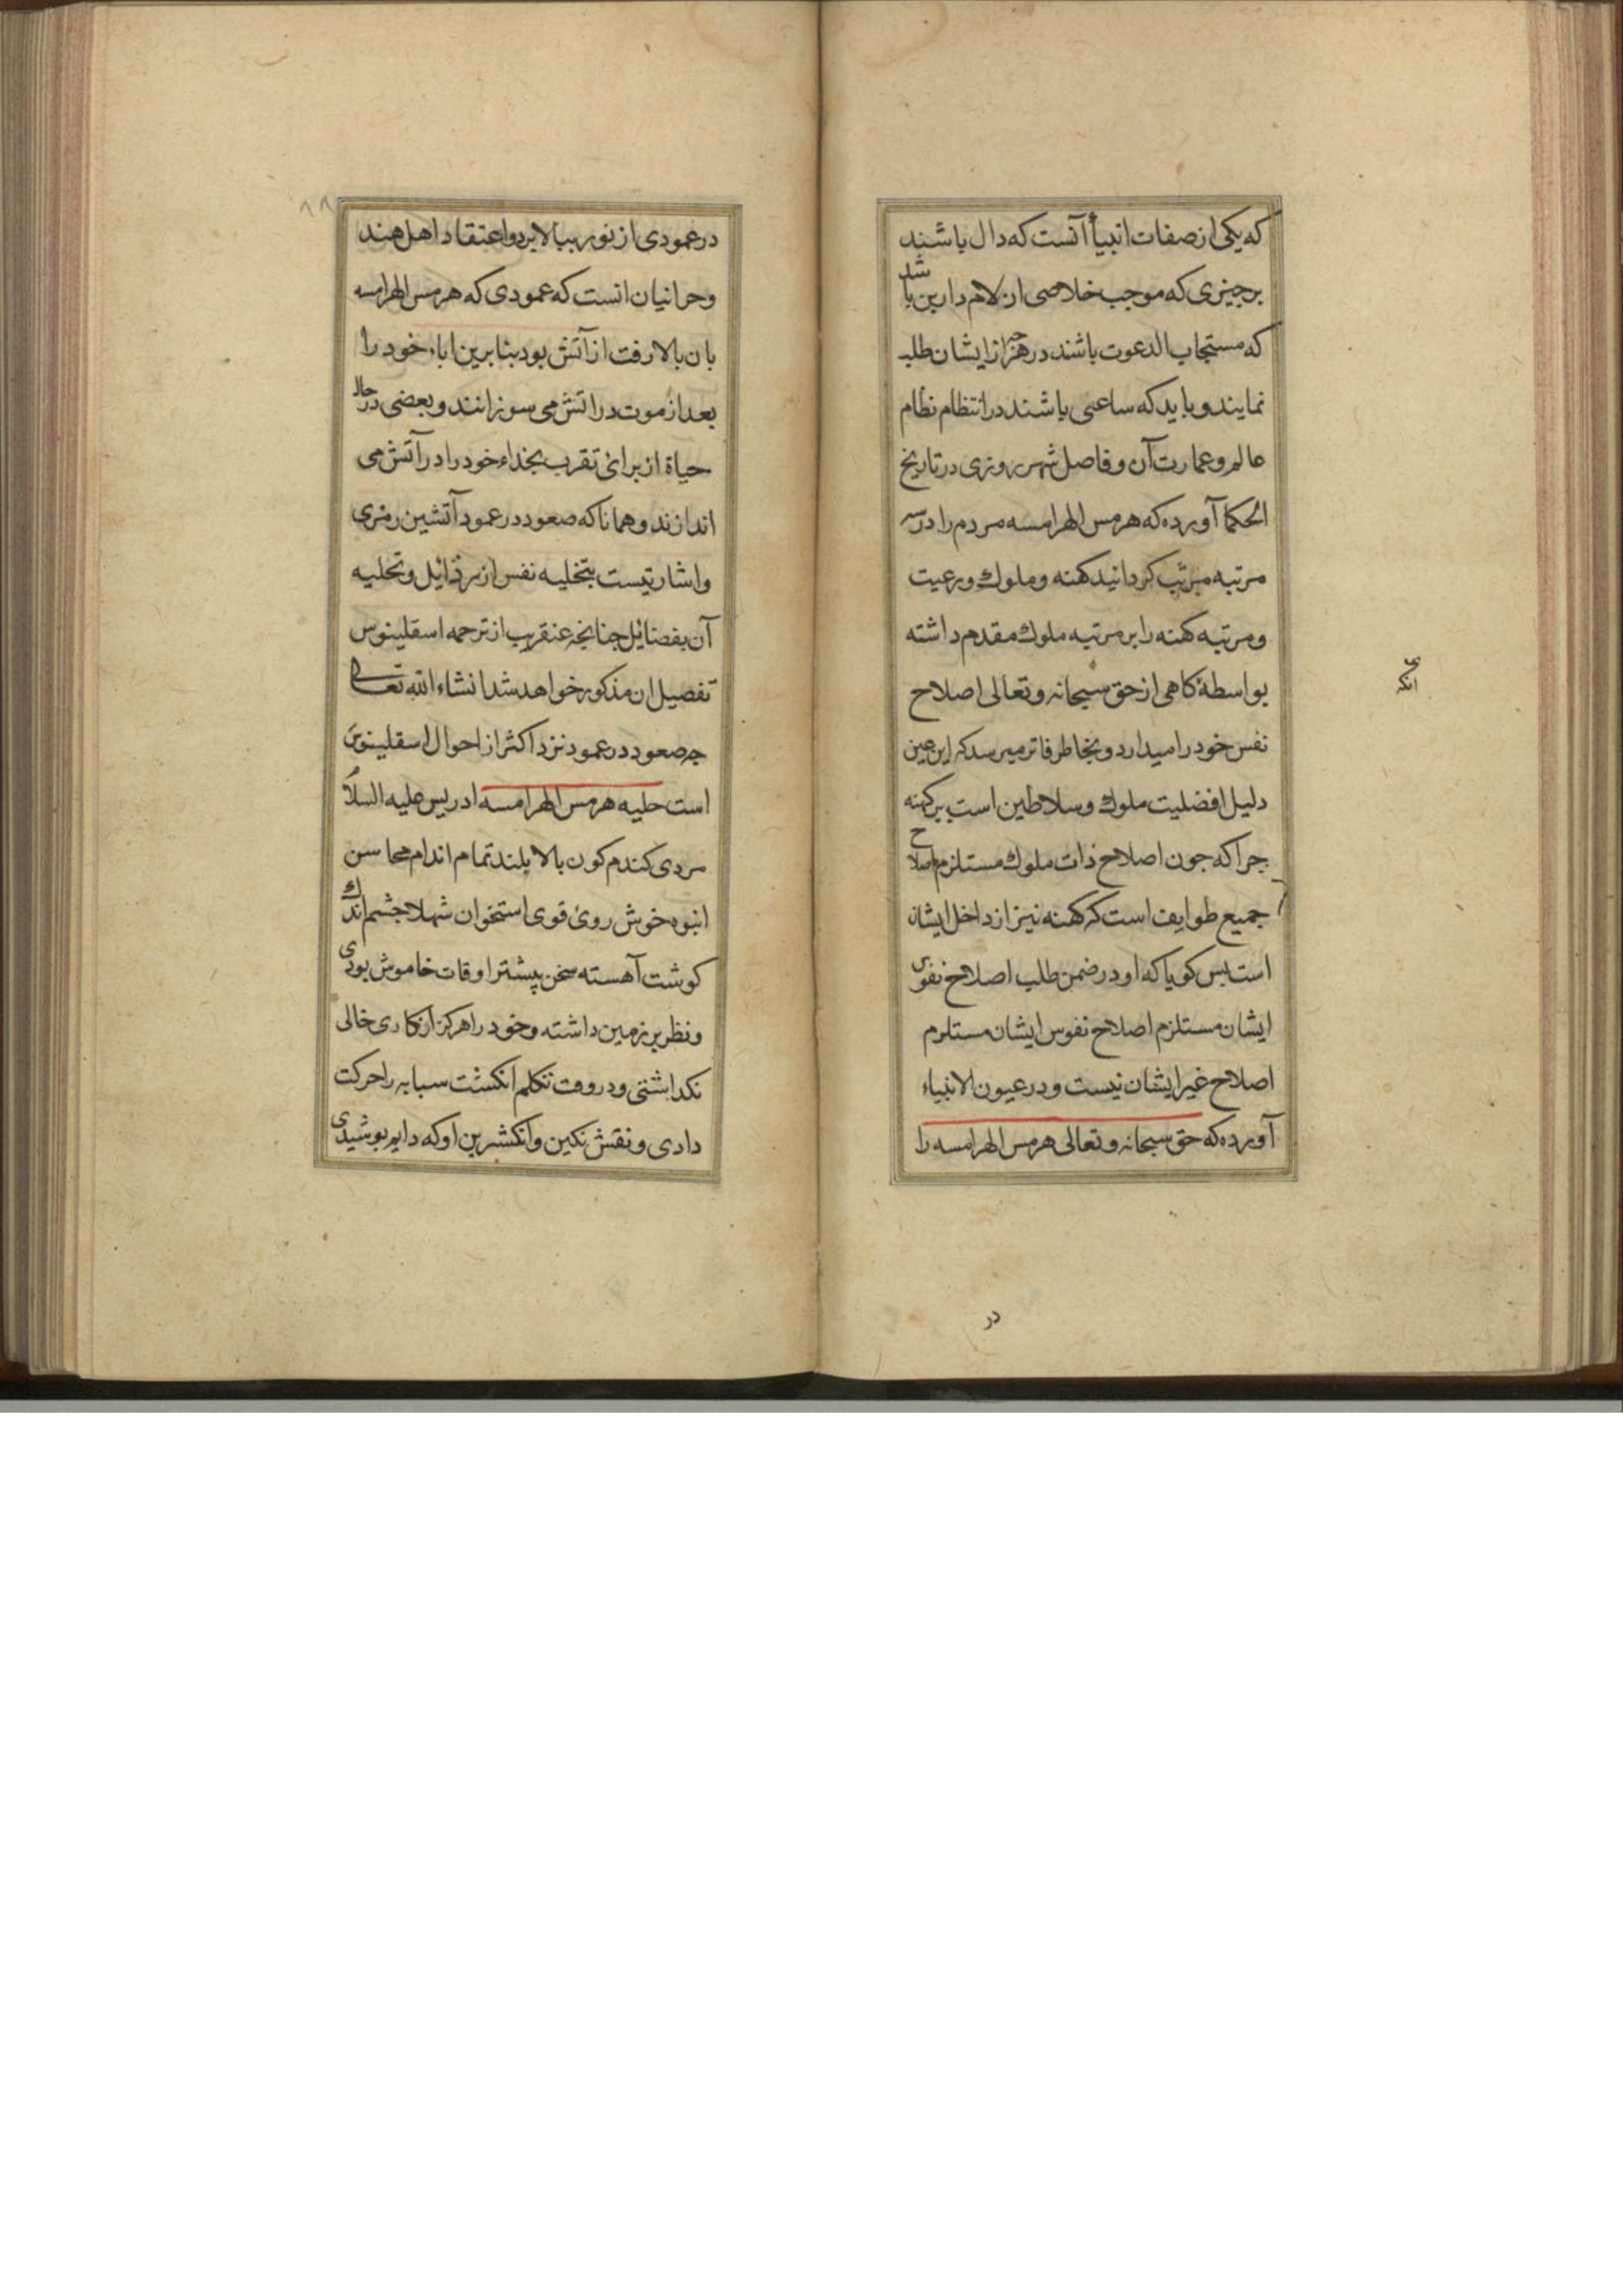 که یکی از صفات انبیأ آنست که دال باشند
برجیزی که موجب خلاصی از لام دارین باشد
که مستجاب الدعوت باشند در هرجه از ایشان طلب
نمایند و باید که ساعی باشند در انتظام نظام
عالم و عمارت آن و فاصل شهرزوری در تاریخ
الحکما آورده که هرمس الهرامسه مردم را در سه
مرتبه مرتب کردانید کهنه و ملوک و رعیت
و مرتبه کهنه را بر مرتبه ملوک مقدم داشته
بواسطهٔ کاهی از حق سبحانه و تعالی اصلاح
نفس خود را میدارد و بخاطر فاتر میرسد که این عین
دلیل افضلیت ملوک و سلاطین است بر کهنه
جرا که جون اصلاح ذات ملوک مستلزم اصلاح
جمیع طوایف است که کهنه نیز از داخل ایشان
است بس کویا که او در ضمن طلب اصلاح نفوس
ایشان مستلزم اصلاح نفوس ایشان مستلزم
اصلاح غیر ایشان نیست و در عیون الانبیاء
آورده که حق سبحانه و تعالی هرمس الهرامسه را
انکه
در
در عمودی از نور ببالا برد و اعتقاد اهل هند
و حرانیان انست که عمودی که هرمس الهرامسه
بان بالا رفت از آتش بود بنا برین اباء خود را
بعد از موت در اتش می سوزانند و بعضی در حال
حیاة از برای تقرب بخداء خود را در آتش می
اندازند و همانا که صعود در عمود آتشین رمزی
و اشارتیست بتخلیه نفس از رذائل و تحلیه
آن بفضائل جنانجه عنقریب از ترجمه اسقلینوس
تفصیل ان مذکور خواهد شد انشاء الله تعالی
جه صعود در عمود نزد اکثر از احوال اسقلینوس
است حلیه هرمس الهرامسه ادریس علیه السلام
مردی کندم کون بالا بلند تمام اندام محاسن
انبوه خوش روی قوی استخوان شهلا جشم اندک
کوشت آهسته سخن پیشتر اوقات خاموش بودی
و نظر بر زمین داشته و خود را هرکز از کاری خالی
نکداشتی و در وقت تکلم انکشت سبابه را حرکت
دادی و نقش نکین وانکشرین او که دایم بوشیدی